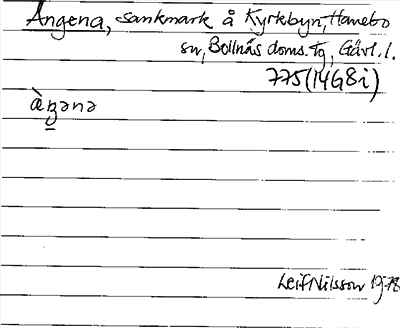 Ängena, sankmark å Kyrkbyn, Hanebo
sn, Bollnäs doms. tg, Gävl. l.
775 (14G8i)
ä̀ŋənə
Leif Nilsson 1978